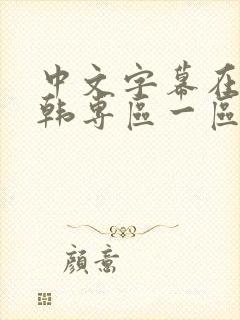 中文字幕在
韩専區一區
顔意